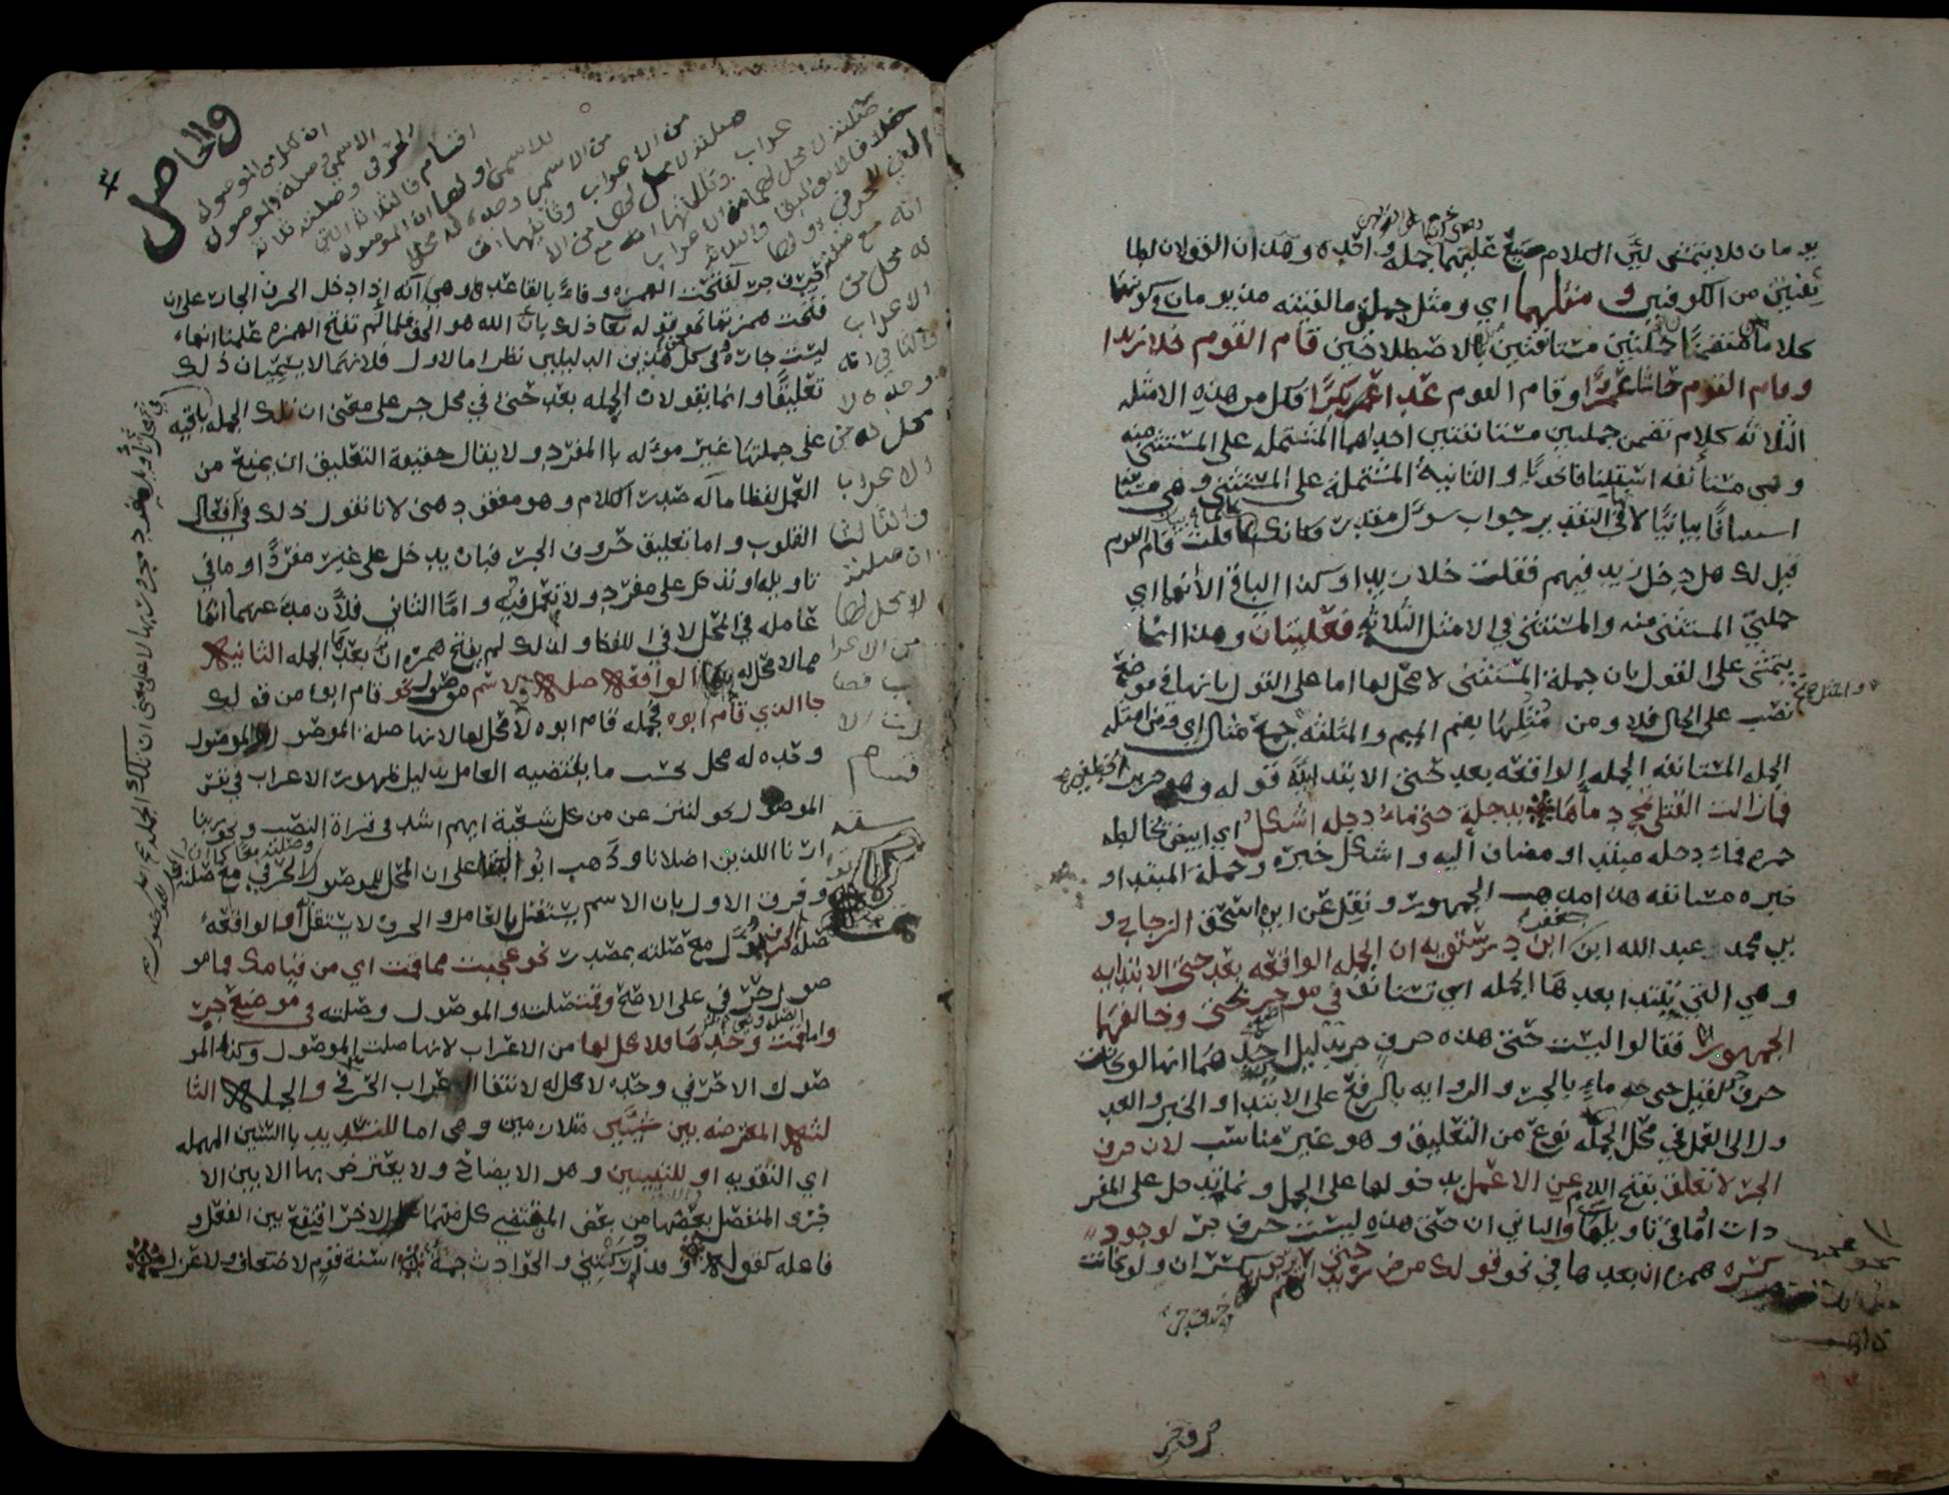 يومان فلا يتمشى لأن الكلام صح عليهما جملة واحده وهذان القولان لطا
ئفتين من الكوفيين ومثلهما اي ومثل جملتي ما لقيته مذ يومان وكونهما
كلاما متضمنا جملتين مستانفتين بالاصطلاحين قام القوم خلا زيدا
وقام القوم حاشا عمرًا وقام القوم عدا بكرًا فكل من هذه الامثله
الثلاثه كلام تضمن جملتين مستانفتين احداهما المشتمله على المستثنى منه
وهي مستأنفه استينافا نحويًا والثانية المشتملة على المستثنى وهي مستانفه
استينافًا بيانيًا لانها في التقدير جواب سؤال مقدر فكانك لما قلت قام القوم
قيل لك هل دخل زيد فيهم فقلت خلا زيدا وكذا الباقي الا انهما اي
جملتي المستثنى منه والمستثنى في الامثله الثلاثه فعليتان وهذا انما
يتمشى على القول بان جملة المستثنى لا محل لها اما على القول بانها في موضع
نصب على الحال فلا ومن مُثُلِها بضم الميم والمثلثه جمع مثال اي ومن امثلة
الجمله المستانفه الجمله الواقعه بعد حتى الابتدائية قوله وهو جرير
فما زالت القتلى تمج دماءها بدجلة حتى ماءُ دجله اشكل اي ابيض يخالطه
حمره فماء دجله مبتدا ومضاف اليه واشكل خبره وجملة المبتدا و
خبره مستانفه هذا مذهب الجمهور ونقل عن ابي اسحق الزجاج و
ابي محمد عبد الله ابن جعفر ابن درستويه ان الجمله الواقعه بعد حتى الابتدايه
وهي التي يُبتدا بعدها الجمله اي تستانف في موضع جر بحتى وخالفهما
الجمهور فقالوا ليست حتى هذه حرف جر بدليل احدهما انها لو كانت
حرف لقيل حتى ماءِ بالجر والروايه بالرفع على الابتدا والخبر والعد
ول الى العمل في محل الجمله نوع من التعليق وهو غير مناسب لان حرف
الجر لا تعلق بفتح اللام عن الاعمل بدخولها على الجمل وانما تدخل على المفر
دات او ما في تاويلها والثاني ان حتى هذه ليست حرف جر لوجود
كسره همزه ان بعدها في نحو قولك مرض زيد حتى انهم لا يرجونه بكسر ان ولو كانت
حرف جر
والحاصل
ان كل من الموصول
الاسمي وصلته والموصول
الحرفي وصلته ثلاثة
اقسام فالثلاثه التي
للاسمي اولها ان الموصول
من الاسمي وحده له محل
من الاعراب وثانيها ان
صلته لا محل لها من الا
عراب وثالثها انه مع
صلته لا محل لهما من الاعراب
خلافا لابي البقا والثلاثه
التي للحرفي اولها
انه مع صلته
له محل من
الاعراب
والثاني انه
وحده لا
محل له من
الاعراب
والثالث
ان صلته
لا محل لها
من الاعرا
حرف جر لفتحت الهمزه وفاءً بالقاعده وهي آنه اذا دخل الحرف الجار على ان
فتحت همزتها نحو قوله تعا ذلك بان الله هو الحق فلما لم تفتح الهمزه علمنا انها
ليست جاره وفي كل من هذين الدليلين نظر اما الاول فلانهما لا يسميان ذلك
تعليقًا وانما يقولان الجمله بعد حتى في محل جر على معنى ان تلك الجمله باقيه
على جملتها غير مؤله بالمفرد ولا يقال حقيقة التعليق ان يمنع من
العمل لفظا ما له صدر الكلام وهو مفقود هنى لانا نقول ذلك في افعال
القلوب واما تعليق حروف الجر فبان يدخل على غير مفردٍ او ما في
تاويله او تدخل على مفرد ولا تعمل فيه واما الثاني فلأن مدعاهما انها
عامله في المحل لا في اللفظ ولذلك لم يفتح همزه ان بعدها الجمله الثانيه
مما لا محل له الواقعه صله لاسم موصول نحو قام ابوه من قولك
جا الذي قام ابوه فجمله قام ابوه لا محل لها لانها صلة الموصول والموصول
وحده له محل بحسب ما يقتضيه العامل بدليل ظهور الاعراب في نفس
الموصول نحو لننزعن من كل شيعة ايهم اشد في قراة النصب ونحو ربنا
ارنا اللذين اضلانا وذهب ابو البقا على ان المحل للموصول وصلته معا كما ان المحل للموصول الحرفي مع صلته
وفرق الاول بان الاسم يستقل بالعامل والحرف لا يستقل او الواقعه
صله لحرف يؤول مع صلته بمصدر نحو عجبت مما قمت اي من قيامك فما مو
صول حرفي على الاصح وقمت صلته والموصول وصلته في موضع جر
واما قمت وحدها فلا محل لها من الاعراب لانها صلت الموصول وكذا المو
صول الاحرفي وحده لا محل له لانتفا الاعراب الحرفي والجمله الثا
لثه المعترضه بين شيئين متلازمين وهي اما للتسديد بالسين المهمله
اي التقويه او للتبيين وهو الايضاح ولا يعترض بها الا بين الا
جزو المنفصل بعضها من بعض المقتضي كل منهما الاخر فيقع بين الفعل و
فاعله كقوله وقد ادركتني والحوادث جمةٌ اسنة قوم لا ضعاف ولا عزل